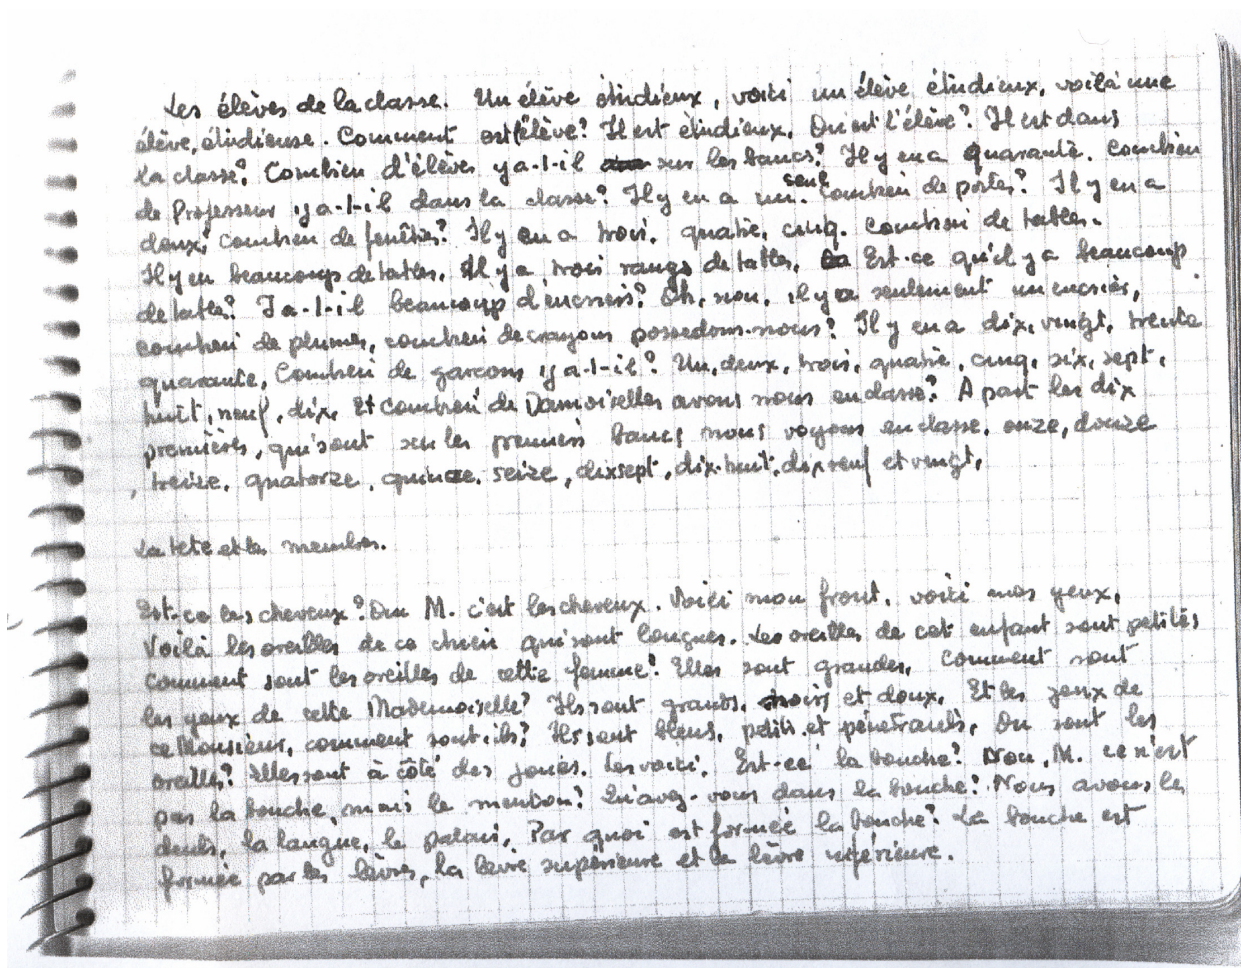 Les élèves de la classe. Un élève étudieux, voici un élève étudieux, voilà une
élève, étudieuse. Comment est l'élève? Il est étudieux. Où est l'élève? Il est dans
la classe? Combien d'élèves y a-t-il sur les bancs? Il y en a quarante. Combien
de Professeur y a-t-il dans la classe? Il y en a un seul. Combien de portes? Il y en a
deux, combien de fenêtres? Il y en a trois, quatre, cinq. Combien de tables.
Il y en beaucoup de tables. Il y a trois rangs de tables. Est-ce qu'il y a beaucoup
de tables? Y a-t-il beaucoup d'encriers? Oh, non, il y a seulement un encrier,
combien de plumes, combien de crayons possedons-nous? Il y en a dix, vingt, trente
quarante, Combien de garcons y a-t-il? Un, deux, trois, quatre, cinq, six, sept,
huit, neuf, dix. Et combien de Damoiselles avons nous en classe? A part les dix
premières, qui sont sur les premiers bancs nous voyons en classe, onze, douze
, treize, quatorze, quinze, seize, dixsept, dix-huit, dix neuf et vingt,
La tete et les membres.
Est-ce les cheveux? Oui M. c'est les cheveux. Voici mon front, voici mes yeux,
Voilà les oreilles de ce chien qui sont longues. Les oreilles de cet enfant sont petites
Comment sont les oreilles de cette femme? Elles sont grandes, Comment sont
les yeux de cette Mademoiselle? Ils sont grands, noirs et doux, Et les yeux de
ce Monsieur, comment sont-ils? Ils sont bleus, petits et pénétrants, Ou sont les
oreilles? Elles sont à côté des joues. Les voici. Est-ce la bouche? Non, M. ce n'est
pas la bouche, mais le menton? Qu'avez-vous dans la bouche? Nous avons les
dents, la langue, le palais, Par quoi est formée la bouche? La bouche est
formée par les lèvres, la lèvre supérieure et la lèvre inférieure.